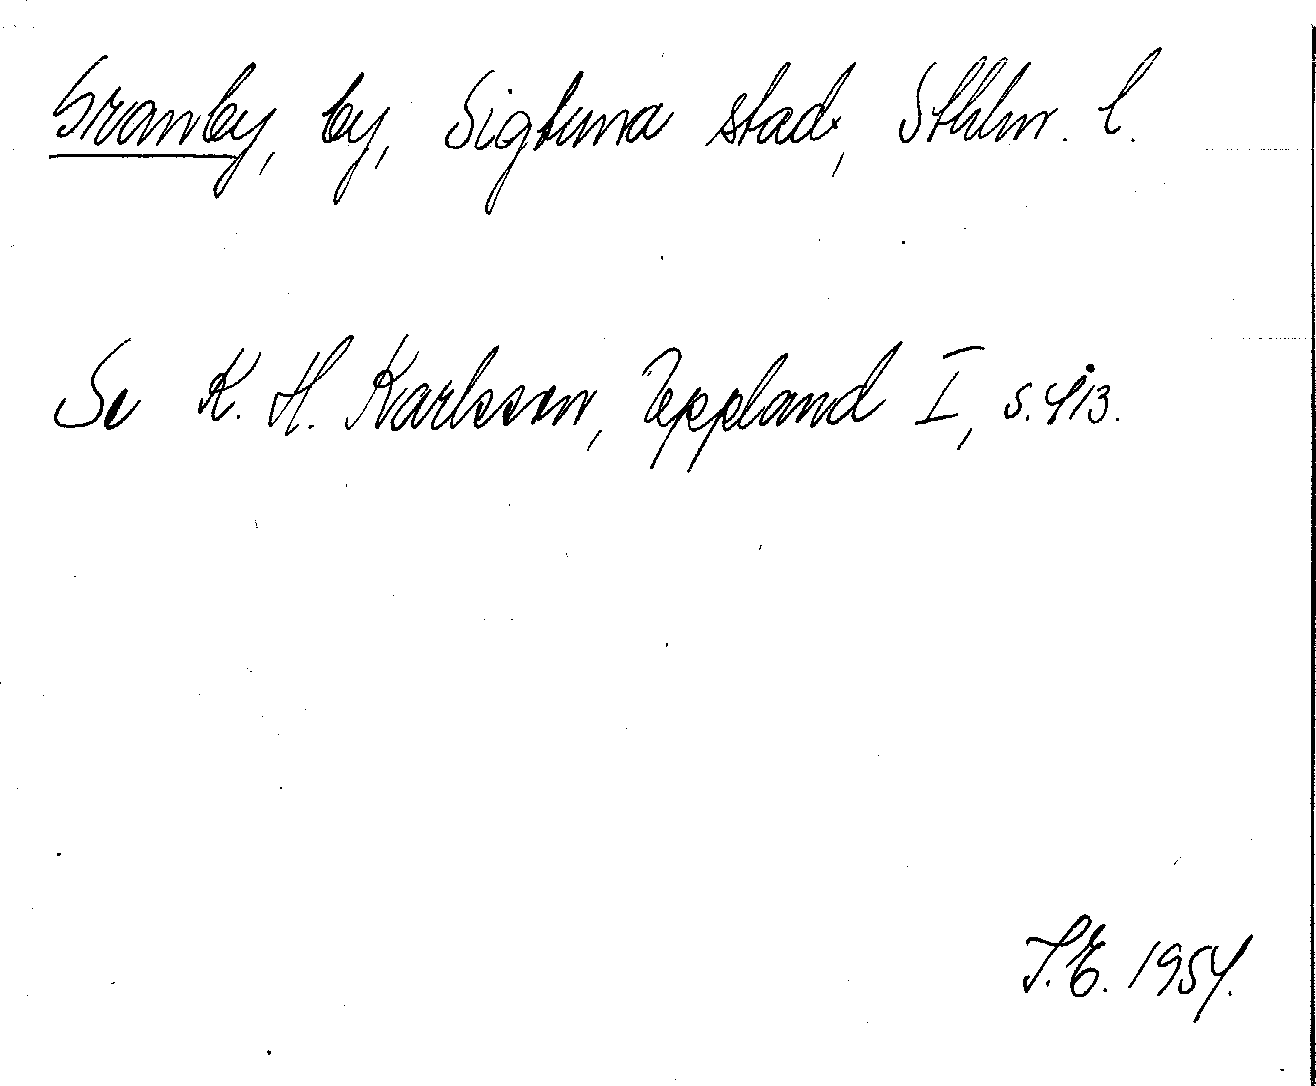 Granby, by, Sigtuna stad, Sthlm. l.
Se K. H. Karlsson, Uppland I, s. 413.
S.E. 1954.